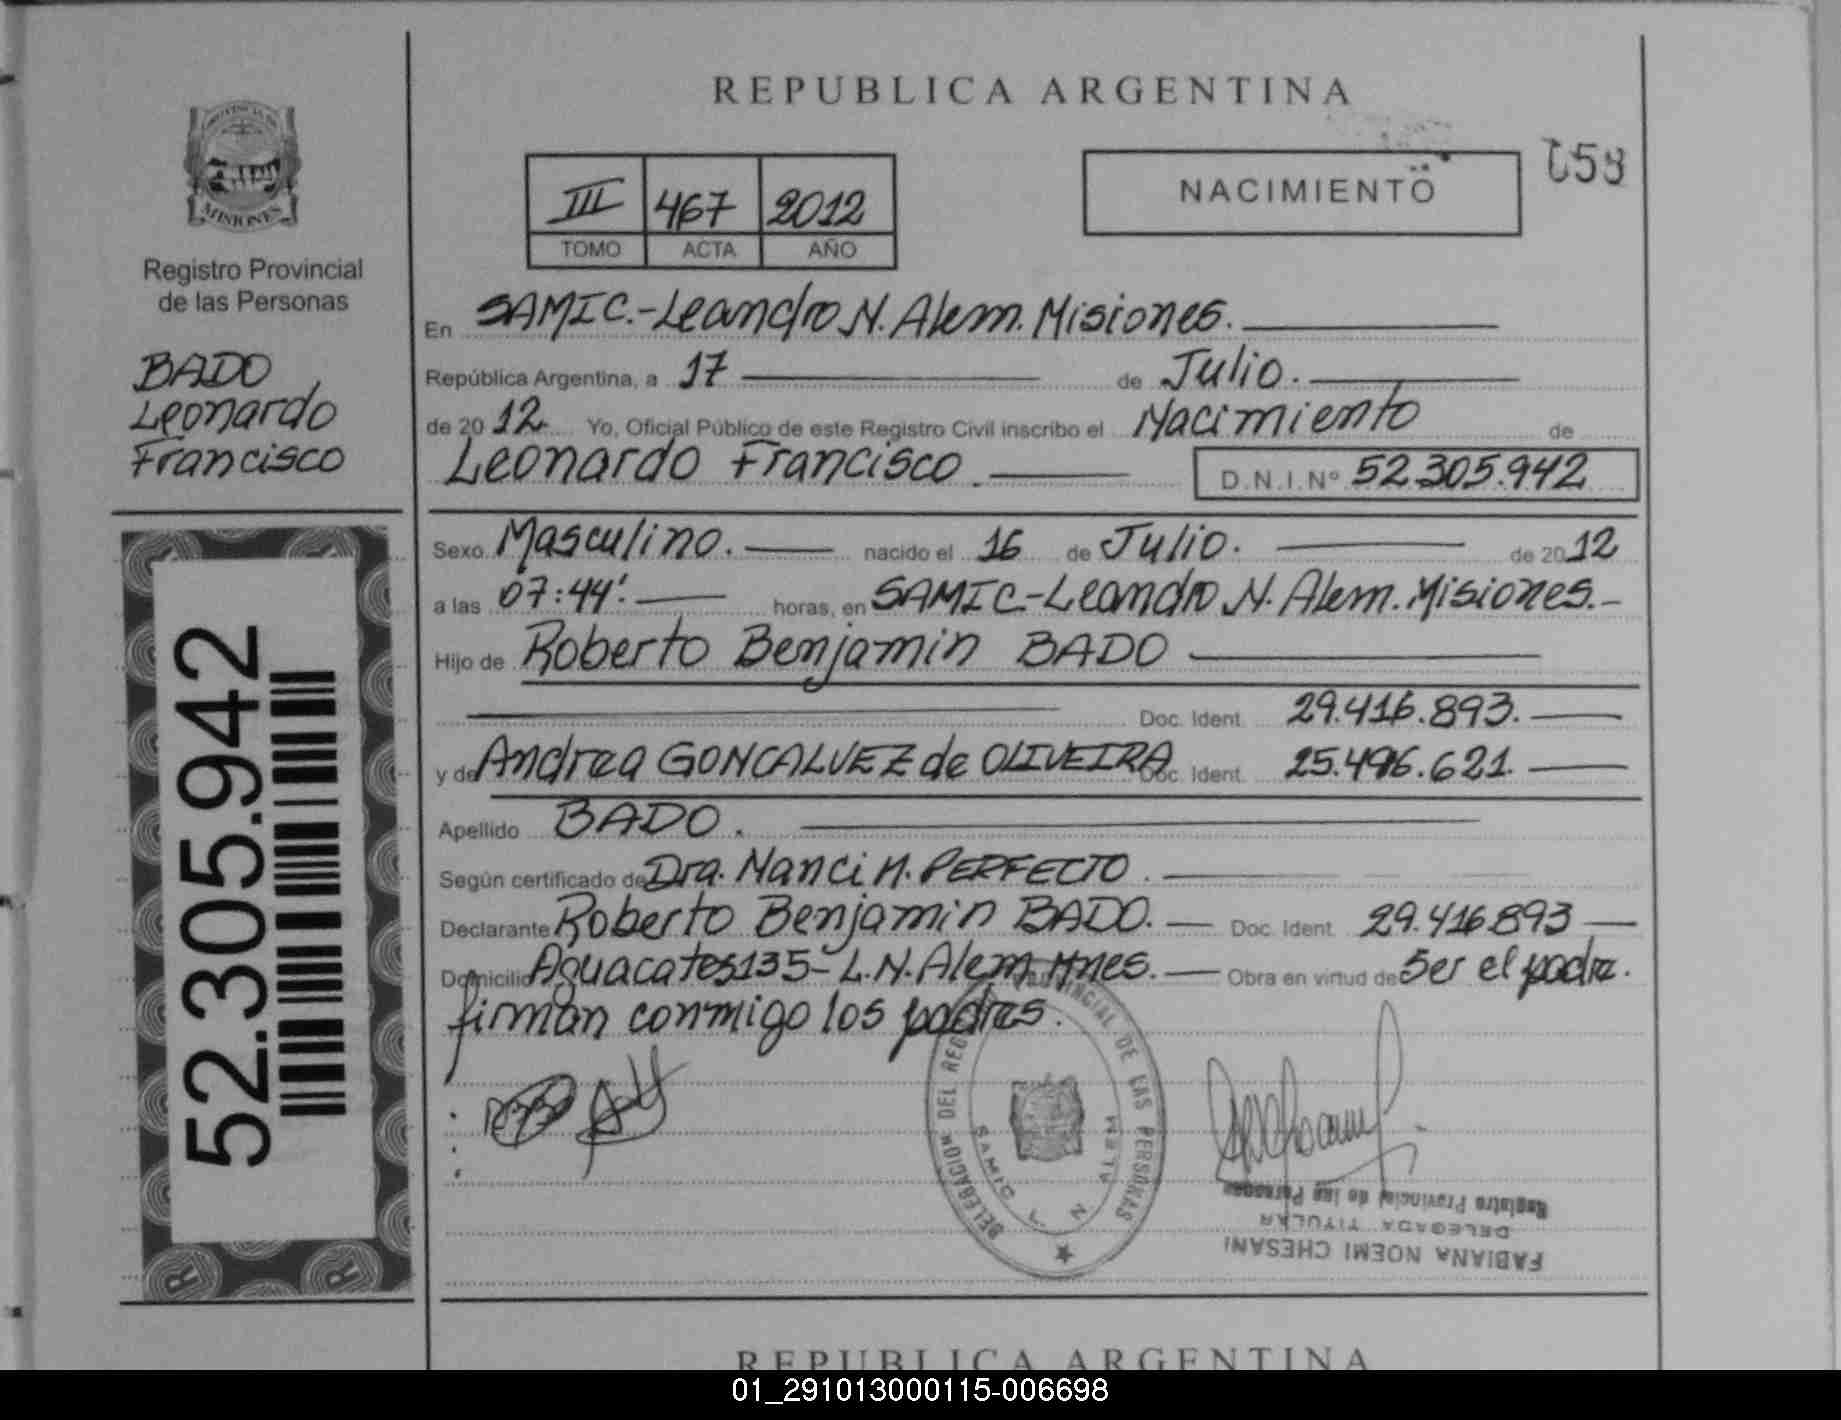 REPUBLICA ARGENTINA
PROVINCIA DE
MISIONES
Registro Provincial
de las Personas
BADO
Leonardo
Francisco
52.305.942
R R
III 467 2012
TOMO ACTA AÑO
NACIMIENTO
058
En SAMIC.-Leandro N. Alem. Misiones.
República Argentina, a 17 de Julio.
de 2012 Yo, Oficial Público de este Registro Civil inscribo el Nacimiento de
Leonardo Francisco. D.N.I.Nº 52.305.942
Sexo Masculino. nacido el 16 de Julio. de 2012
a las 07:44'. horas, en SAMIC-Leandro N. Alem. Misiones.-
Hijo de Roberto Benjamin BADO
Doc. Ident. 29.416.893.
y de Andrea GONCALVEZ de OLIVEIRA Doc. Ident. 25.496.621.
Apellido BADO.
Según certificado de Dra. Nanci M. PERFECTO.
Declarante Roberto Benjamin BADO. Doc. Ident. 29.416.893
Domicilio Aguacates 135-L.N.Alem Mnes. Obra en virtud de Ser el padre.
firman conmigo los padres.
DELEGACION DEL REG PROVINCIAL DE LAS PERSONAS
SAMIC L. N. ALEM
Registro Provincial de las Personas
DELEGADA TITULAR
FABIANA NOEMI CHESANI
REPUBLICA ARGENTINA
01_291013000115-006698